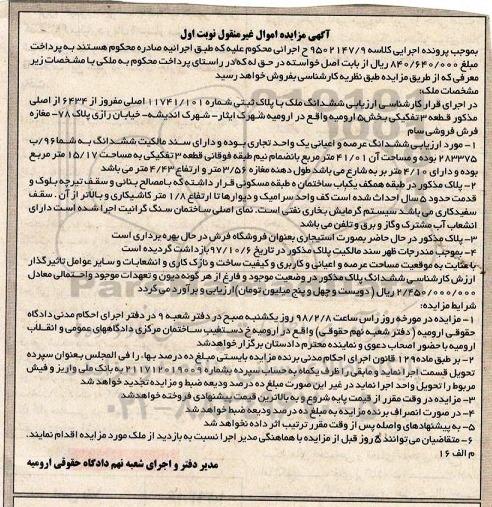 آگهی مزایده اموال غیرمنقول نوبت اول
بموجب پرونده اجرایی کلاسه ۹۵۰۲۱۴۷/۹ ح اجرائی محکوم علیه که طبق اجرائیه صادره محکوم هستند به پرداخت
مبلغ ۸۴۰/۶۴۰/۰۰۰ ریال از بابت اصل خواسته در حق له که در راستای پرداخت محکوم به ملکی با مشخصات زیر
معرفی که از طریق مزایده طبق نظریه کارشناسی بفروش خواهد رسید
مشخصات ملک:
در اجرای قرار کارشناسی ارزیابی ششدانگ ملک با پلاک ثبتی شماره ۱۱۷۴۱/۱۰۱ اصلی مفروز از ۶۴۳۴ از اصلی
مذکور قطعه ۳ تفکیکی بخش ۵ ارومیه واقع در ارومیه شهرک ایثار- شهرک اندیشه- خیابان رازی پلاک ۷۸- مغازه
فرش فروشی سام
۱- مورد ارزیابی ششدانگ عرصه و اعیانی یک واحد تجاری بوده و دارای سند مالکیت ششدانگ به شما ۹۶/ب
۲۸۳۳۷۵ بوده و مساحت آن ۴۱/۰۱ متر مربع بانضمام نیم طبقه فوقانی قطعه ۳ تفکیکی به مساحت ۱۵/۱۷ متر مربع
بوده و دارای ۴/۱۰ متر بر به شارع می باشد طول دهنه مغازه ۳/۵۶ متر و ارتفاع ۴/۴۳ متر می باشد
۲- پلاک مذکور در طبقه همکف یکباب ساختمان ۵ طبقه مسکونی قرار داشته که با مصالح بنائی و سقف تیرچه بلوک و
قدمت حدود ۵ سال احداث شده است کف واحد سرامیک و دیوارها تا ارتفاع ۱/۸ متر کاشیکاری و بالاتر از آن . سقف
سفیدکاری می باشد سیستم گرمایش بخاری نفتی است. نمای اصلی ساختمان سنگ گرانیت اجرا شده است دارای
انشعاب آب مشترک و گاز و برق و تلفن می باشد
۳- پلاک مذکور در حال حاضر بصورت استیجاری بعنوان فروشگاه فرش در حال بهره برداری است
۴- بموجب مندرجات ظهر سند مالکیت پلاک مذکور در تاریخ ۹۷/۱۰/۶ بازداشت گردیده است
با عنایت به موقعیت مساحت عرصه و اعیانی و کاربری و کیفیت ساخت و نازک کاری و انشعابات و سایر عوامل تاثیرگذار
ارزش کارشناسی ششدانگ پلاک مذکور در وضعیت موجود و فارغ از هر گونه دیون و تعهدات موجود و احتمالی معادل
۲/۴۵۰/۰۰۰/۰۰۰ ریال (دویست و چهل و پنج میلیون تومان) ارزیابی و برآورد می گردد
شرایط مزایده:
۱- مزایده در مورخه روز راس ساعت ۹۸/۲/۸ روز یکشنبه صبح در دفتر شعبه ۹ در دفتر اجرای احکام مدنی دادگاه
حقوقی ارومیه (دفتر شعبه نهم حقوقی) واقع در ارومیه خ دستغیب ساختمان مرکزی دادگاههای عمومی و انقلاب
ارومیه با حضور اصحاب دعوی و نماینده محترم دادستان برگزار خواهد شد
۲- بر طبق ماده ۱۲۹ قانون اجرای احکام مدنی برنده مزایده بایستی مبلغ ده درصد بها، را فی المجلس بعنوان سپرده
تحویل قسمت اجرا نماید و مابقی را ظرف یکماه به حساب سپرده بشماره ۲۱۱۷۱۲۰۱۹۰۰۹ به بانک ملی واریز و فیش
مربوط را تحویل واحد اجرا نماید در غیر این صورت مبلغ ده درصد ودیعه ضبط و مزایده تجدید خواهد شد
۳- مزایده در وقت مقرر از قیمت پایه شروع و به بالاترین قیمت پیشنهادی فروخته خواهد شد
۴- در صورت انصراف برنده مزایده به مبلغ ده درصد ودیعه ضبط خواهد شد
۵- به پیشنهادهای واصله پس از وقت مقرر ترتیب اثر داده نخواهد شد
۶- متقاضیان می توانند ۵ روز قبل از مزایده با هماهنگی مدیر اجرا نسبت به بازدید از ملک مورد مزایده اقدام نمایند.
م الف ۱۶
مدیر دفتر و اجرای شعبه نهم دادگاه حقوقی ارومیه